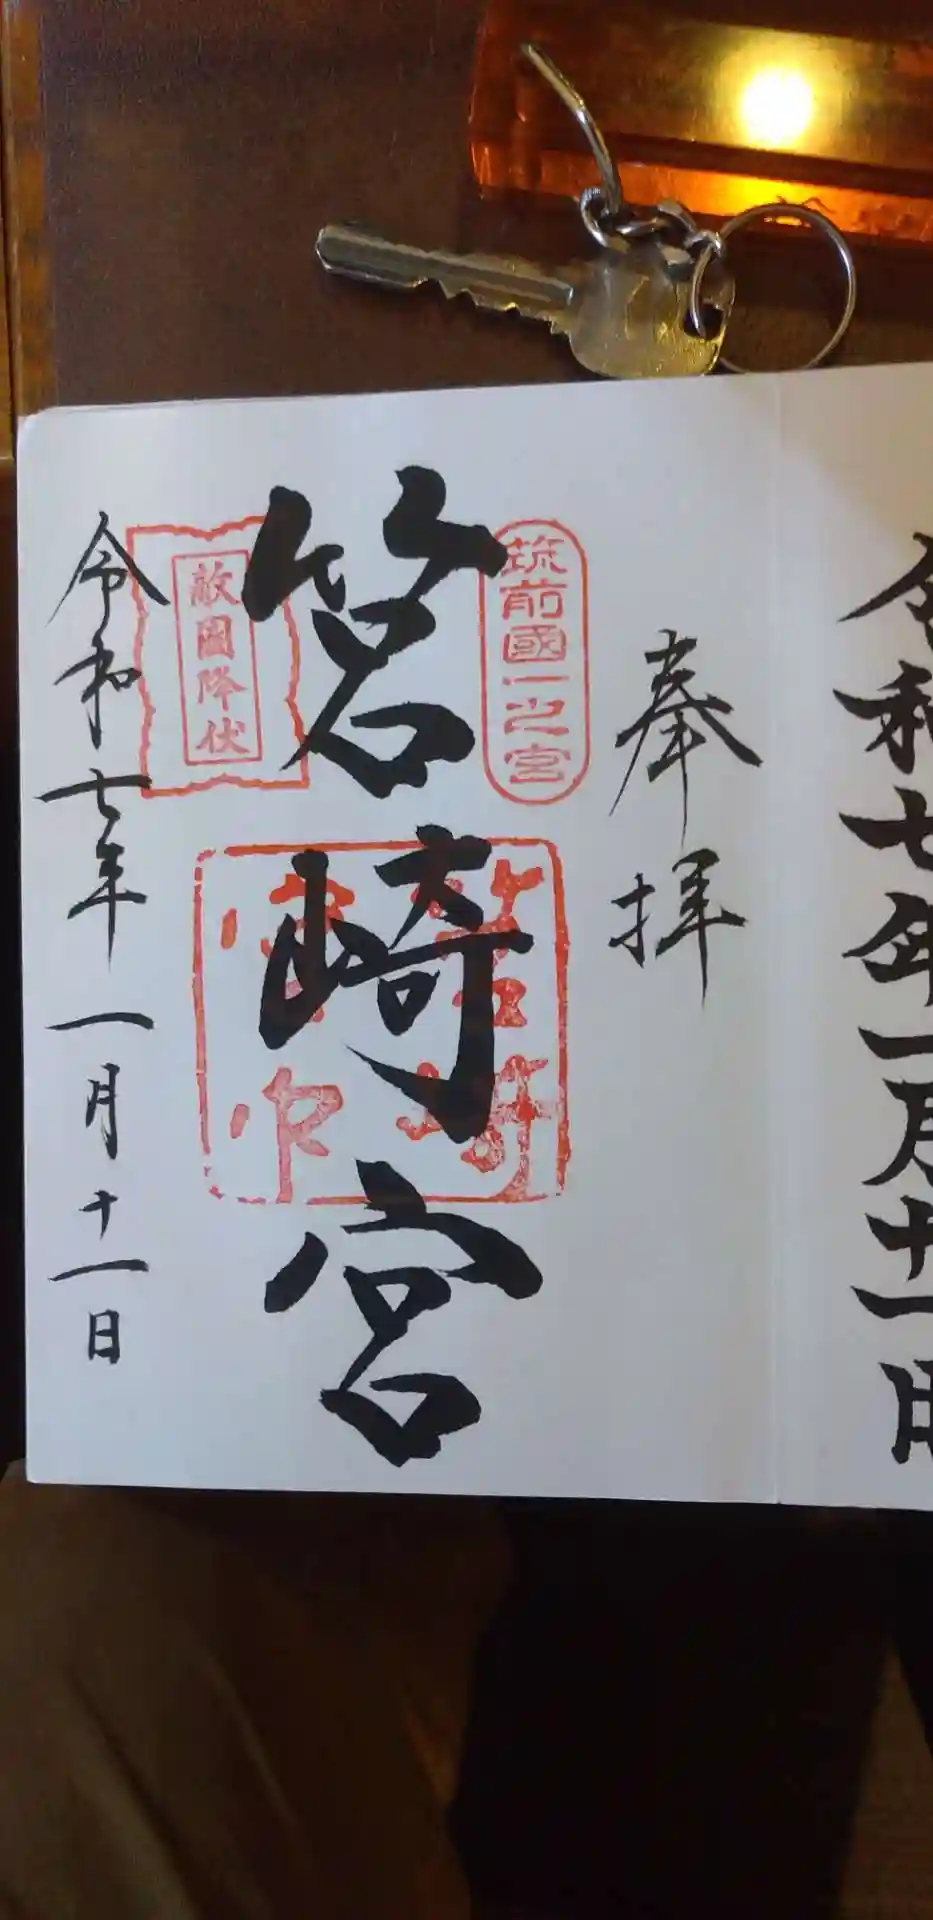 令和七年一月十一日
奉拝
筑前國一之宮
筥崎宮
筥崎宮印
敵國降伏
令和七年一月十一日